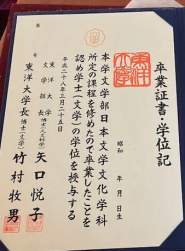 卒業証書・学位記
昭和 年 月 日生
本学文学部日本文学文化学科
所定の課程を修めたので卒業したことを
認め学士(文学)の学位を授与する
平成二十八年三月二十五日
東洋大学
文学部長 博士(人文科学) 矢口悦子
東洋大学長 博士(文学) 竹村牧男